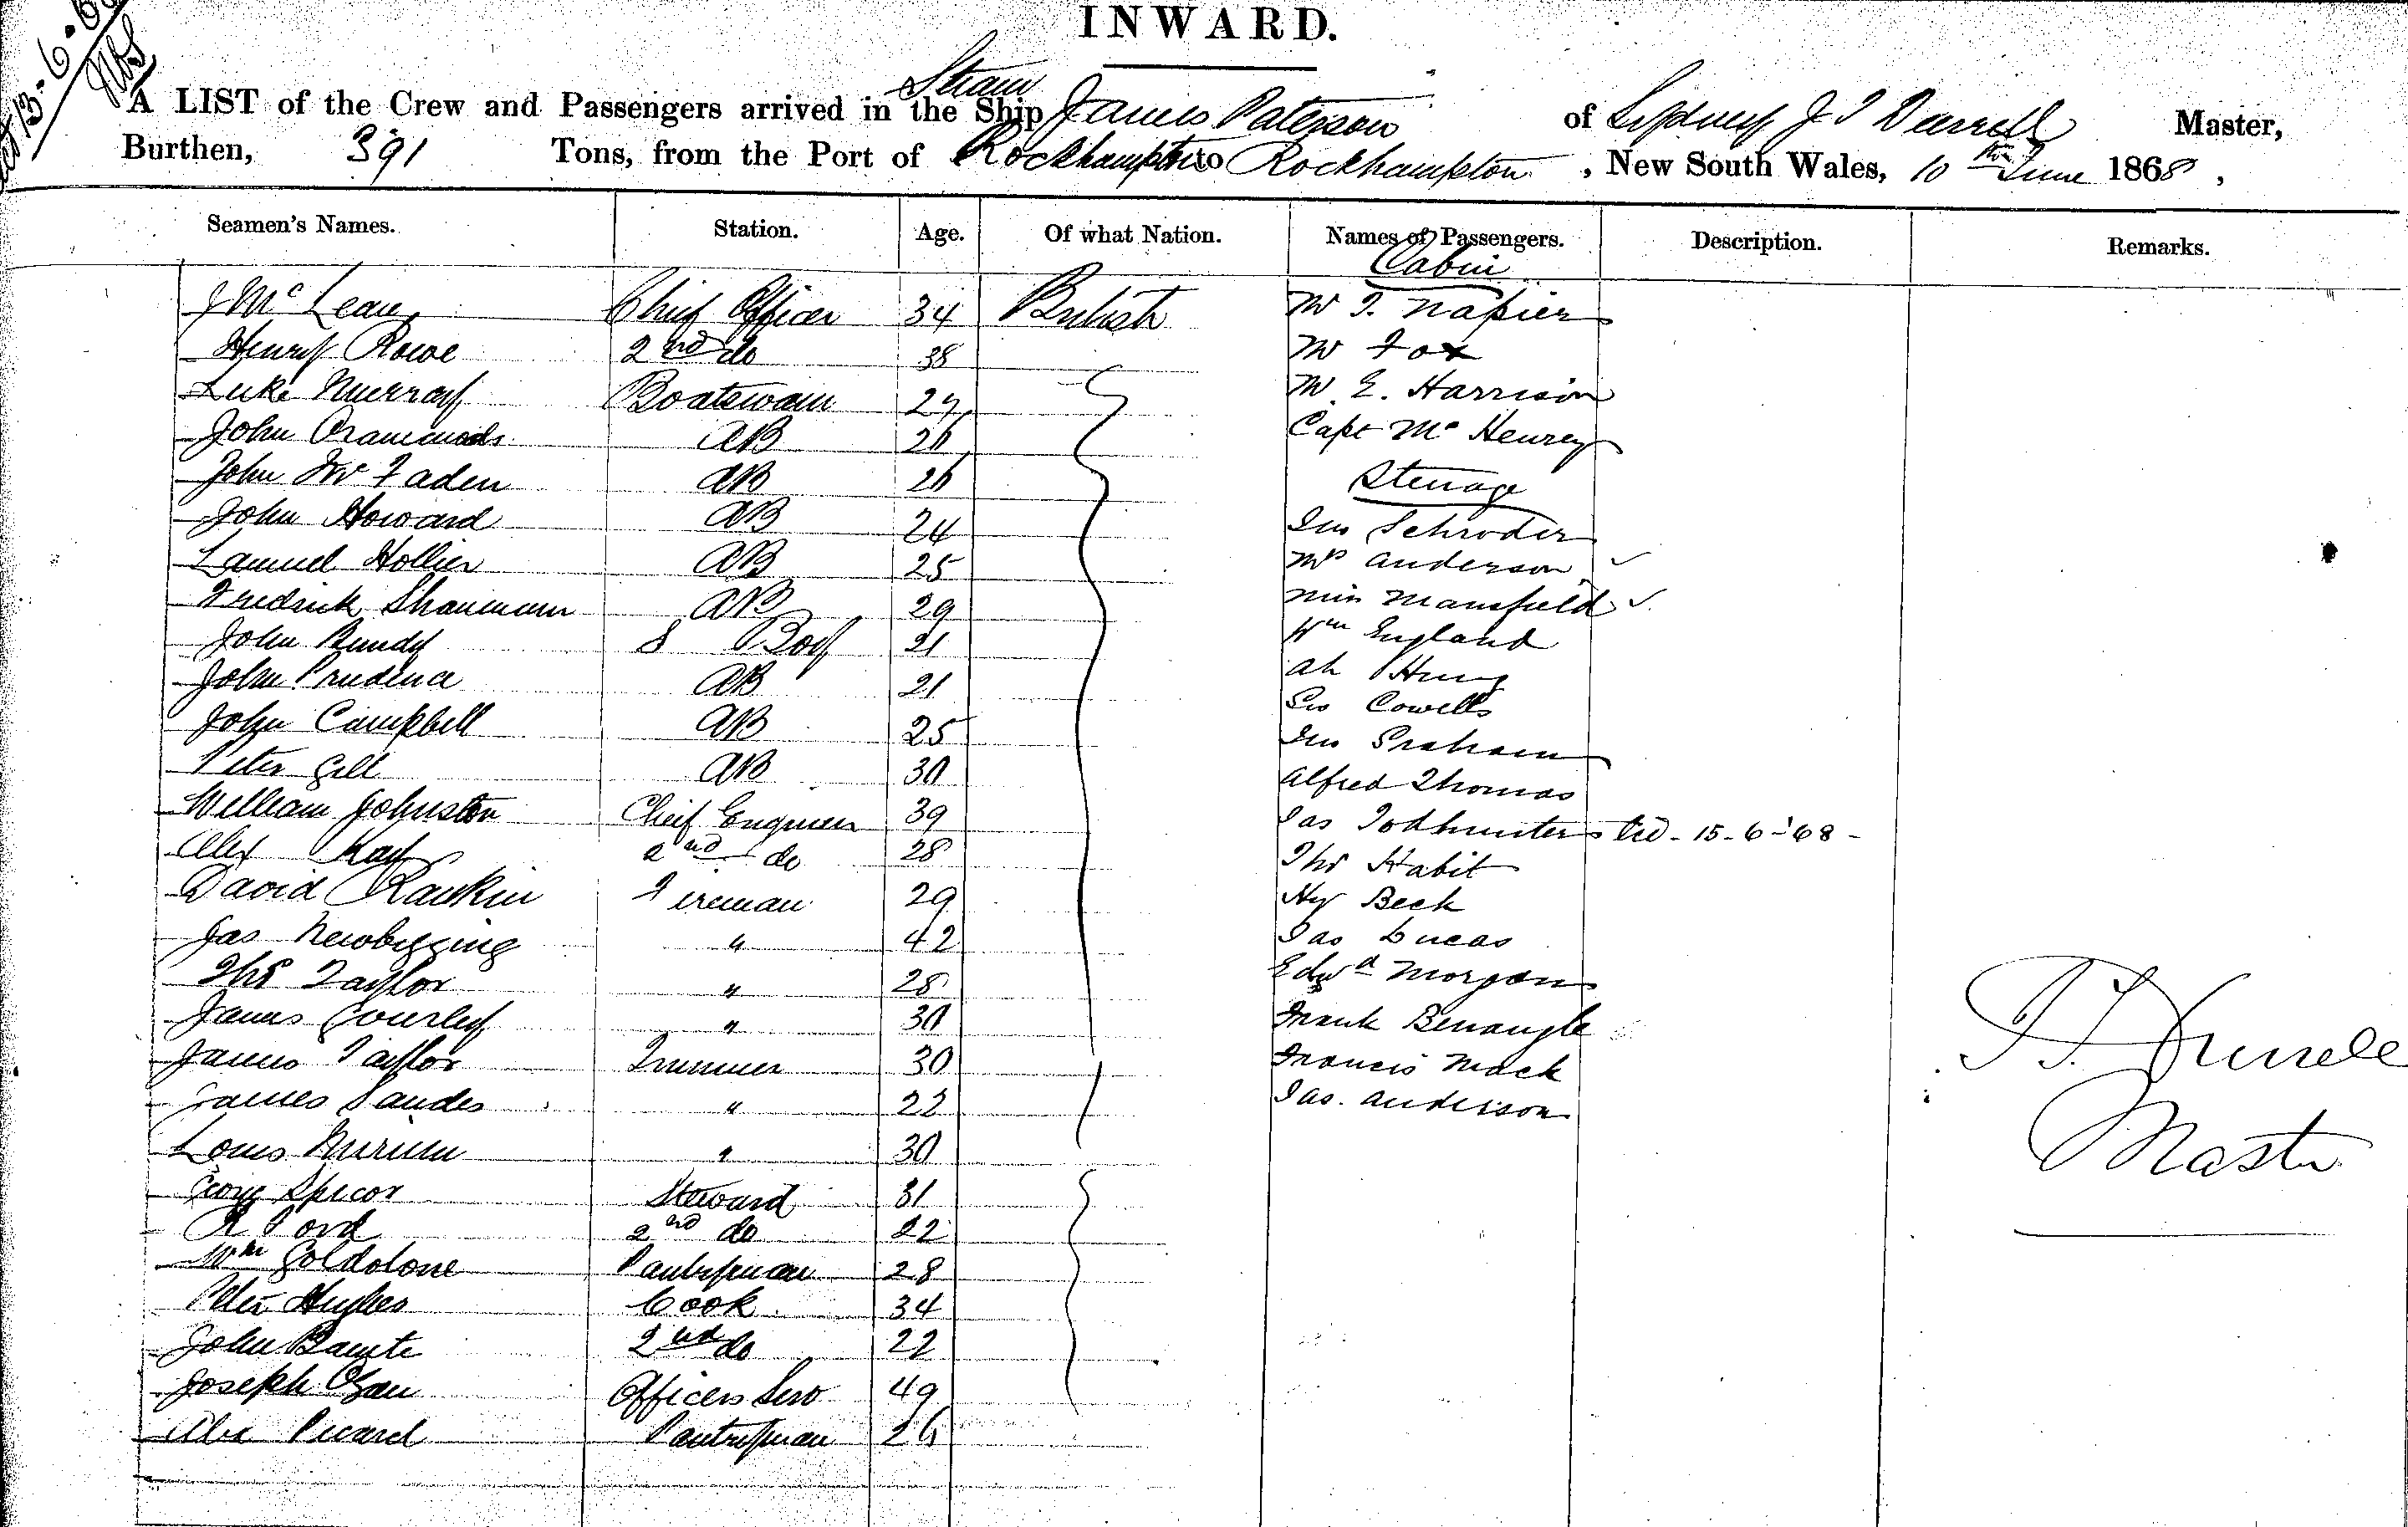 INWARD.
A LIST of the Crew and Passengers arrived in the Steam Ship James Paterson of Sydney J T Durrell Master,
Burthen, 391 Tons, from the Port of Rockhampton to Rockhampton, New South Wales, 10th June 1868,
Seamen's Names. Station. Age. Of what Nation. Names of Passengers. Description. Remarks.
Cabin
J McLean Chief Officer 34 British Mr T. Napier
Henry Rowe 2nd do 38 Mr Fox
Luke Murray Boatswain 27 Mr E. Harrison
John AB 26 Capt McHenrey
John McFaden AB 26 Steerage
John Howard AB 24 Jno Schroder
Samuel Hollier AB 25 Mrs Anderson ✓
Fredrick AB 29 Miss Mansfield ✓
John Bundy S Boy 21 Wm England
John Prudence AB 21 Ah Hung
John Campbell AB 25 Geo Cowells
Peter Gill AB 30 Jno Graham
William Johnston Chief Engineer 39 Alfred Thomas
Alex Kay 2nd do 28 Jas Todhunter - 15-6-'68 -
David Rankin Fireman 29 Thos Habit
Jas Newbigging " 42 Hy Beck
Thos Taylor " 28 Jas Lucas
James Gourley " 30 Edwd Morgan
James Taylor Trimmer 30 Frank Benangle
James Sandes " 22 Francis Mack
Louis " 30 Jas. Anderson
George Spicor Steward 31
R Ford 2nd do 22
Wm Goldstone Pantryman 28
Peter Hughes Cook 34
John 2nd do 22
Joseph Officers Serv 49
Alex Picard Pantryman 26
J T Durrell
Master